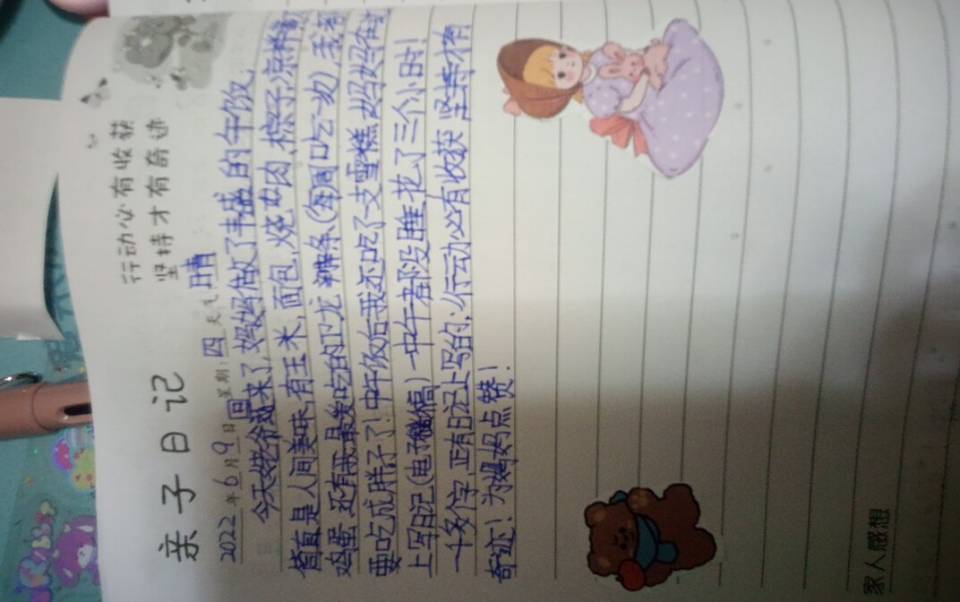 亲子日记
行动必有收获
坚持才有奇迹
2022年6月9日 星期:四 天气 晴
今天姥爷回来了,妈妈做了丰盛的午饭,
简直是人间美味,有玉米,面包,烧牛肉,粽子,
鸡蛋,还有我最爱吃的卫龙辣条(每周吃一次)我
要吃成胖子了!中午饭后我还吃了一支雪糕,妈妈
上写日记(电子稿)一中午都没睡,花了三个小时!
一千多字,正有日记上写的:行动必有收获 坚持才有
奇迹!为妈妈点赞!
家人感想